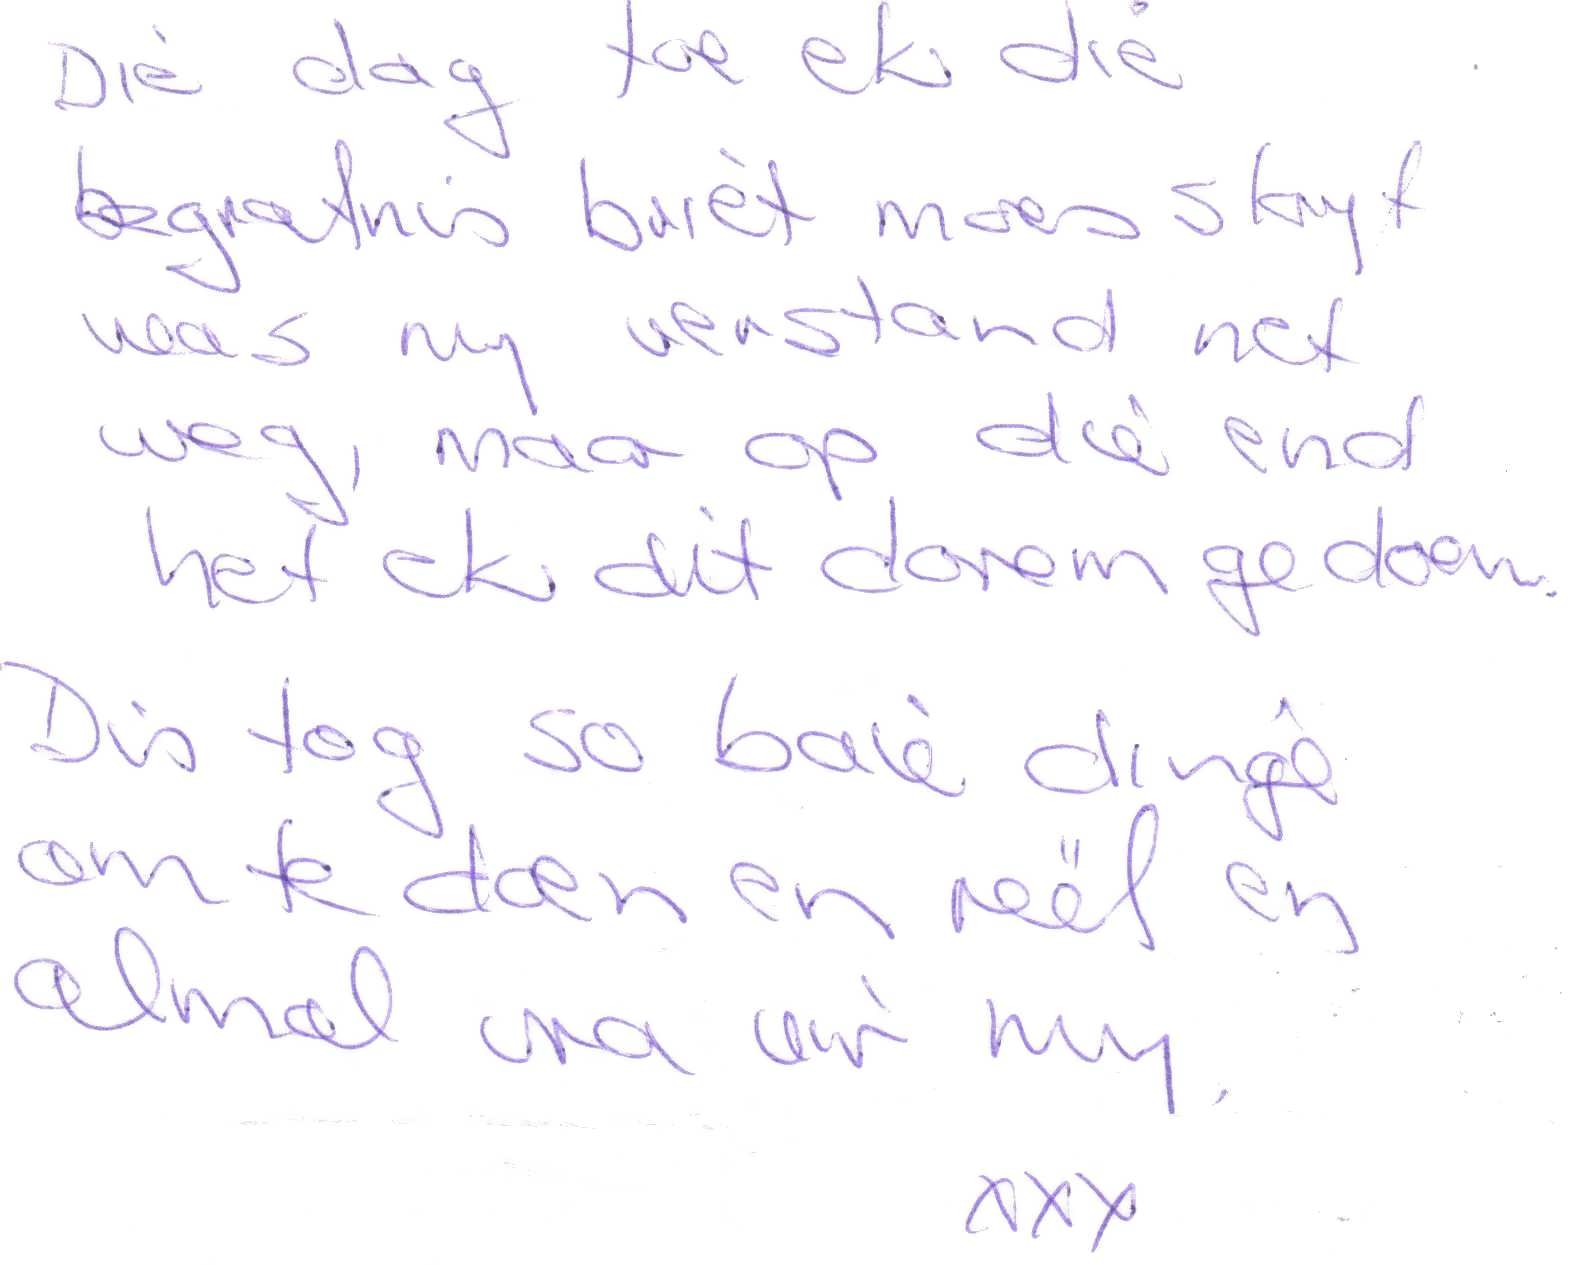 Die dag toe ek die
begrafnis brief moes skryf
was my verstand net
weg, maar op die end
het ek dit darem gedoen.
Dis tog so baie dinge
om te doen en reël en
almal vra vir my.
xxx